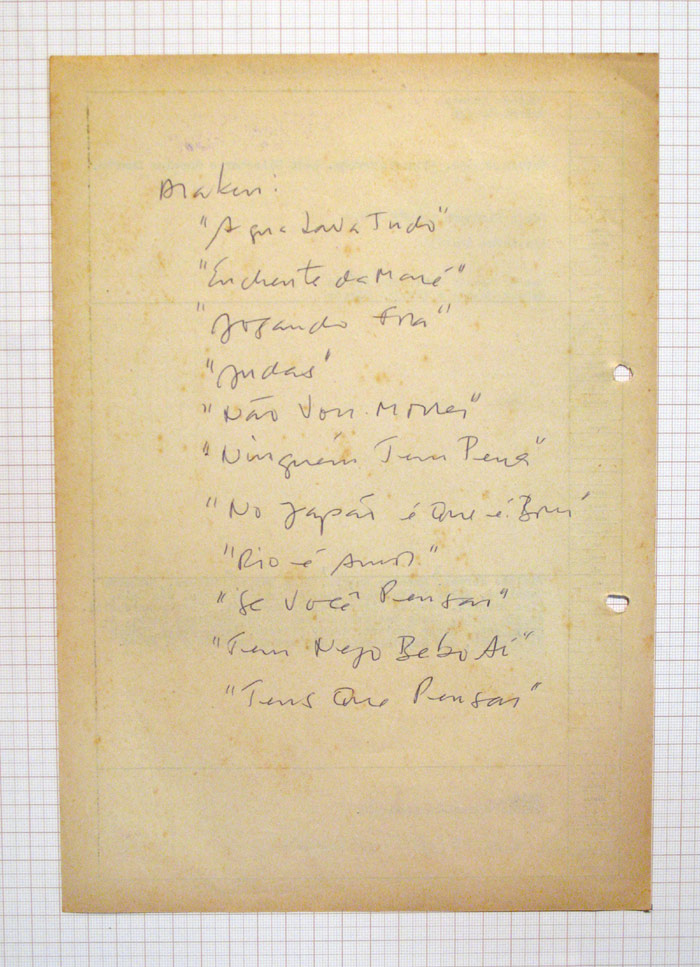 Araken:
"Agua Lava Tudo"
"Enchente da Maré"
"Jogando Fora"
"Judas"
"Não Vou Morrer"
"Ninguém Tem Pena"
"No Japão é Que é Bom"
"Rio é Amor"
"Se Você Pensar"
"Tem Nego Bebo Aí"
"Tens Que Pensar"